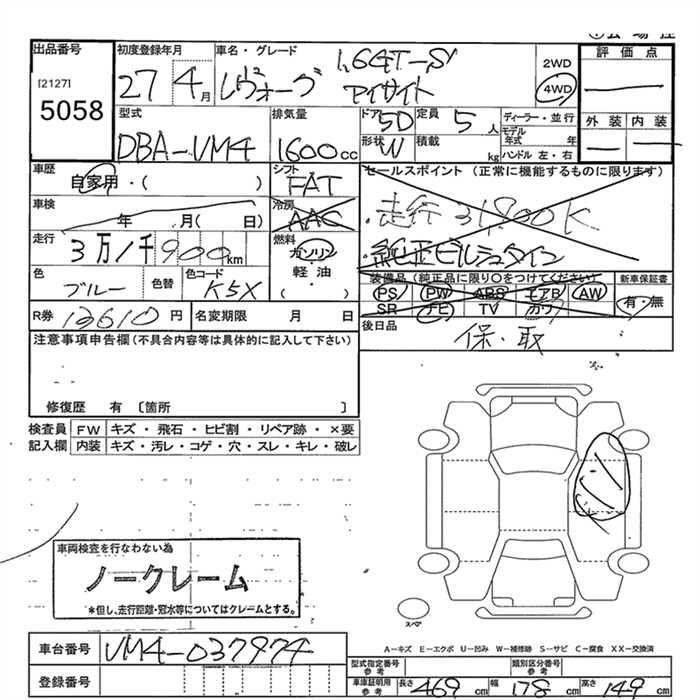 出品番号
[2127]
5058
初度登録年月
27 4月
車名・グレード
レヴォーグ
1.6GT-S
アイサイト
2WD
4WD
評価点
外装 内装
型式
DBA-VM4
排気量
1600cc
ドア 5D
形状 W
定員 5人
積載 kg
ディーラー・並行
モデル年式 年
ハンドル 左・右
車歴
自家用・( )
車検
年 月( 日)
走行
3万1千900km
色
ブルー
色替
色コード
K5X
シフト
FAT
冷房
AAC
燃料
ガソリン
軽油
・( )
セールスポイント (正常に機能するものに限ります)
・走行31,900K
・純正ビルシュタイン
装備品 (純正品に限り○をつけてください)
PS PW ABS エアB AW
SR ナビ TV カワ
新車保証書
有・無
後日品
保・取
R券 12610円
名変期限 月 日
注意事項申告欄(不具合内容等は具体的に記入して下さい)
修復歴 有 [箇所 ]
検査員 FW キズ・飛石・ヒビ割・リペア跡・×要
記入欄 内装 キズ・汚レ・コゲ・穴・スレ・キレ・破レ
車両検査を行なわない為
ノークレーム
*但し、走行距離・冠水等についてはクレームとする。
スペア
A-キズ E-エクボ U-凹み W-補修跡 S-サビ C-腐食 XX-交換済
車台番号
VM4-037974
登録番号
型式指定番号
参考
類別区分番号
参考
車庫証明用
参考
長さ 469cm 幅 178cm 高さ 149cm